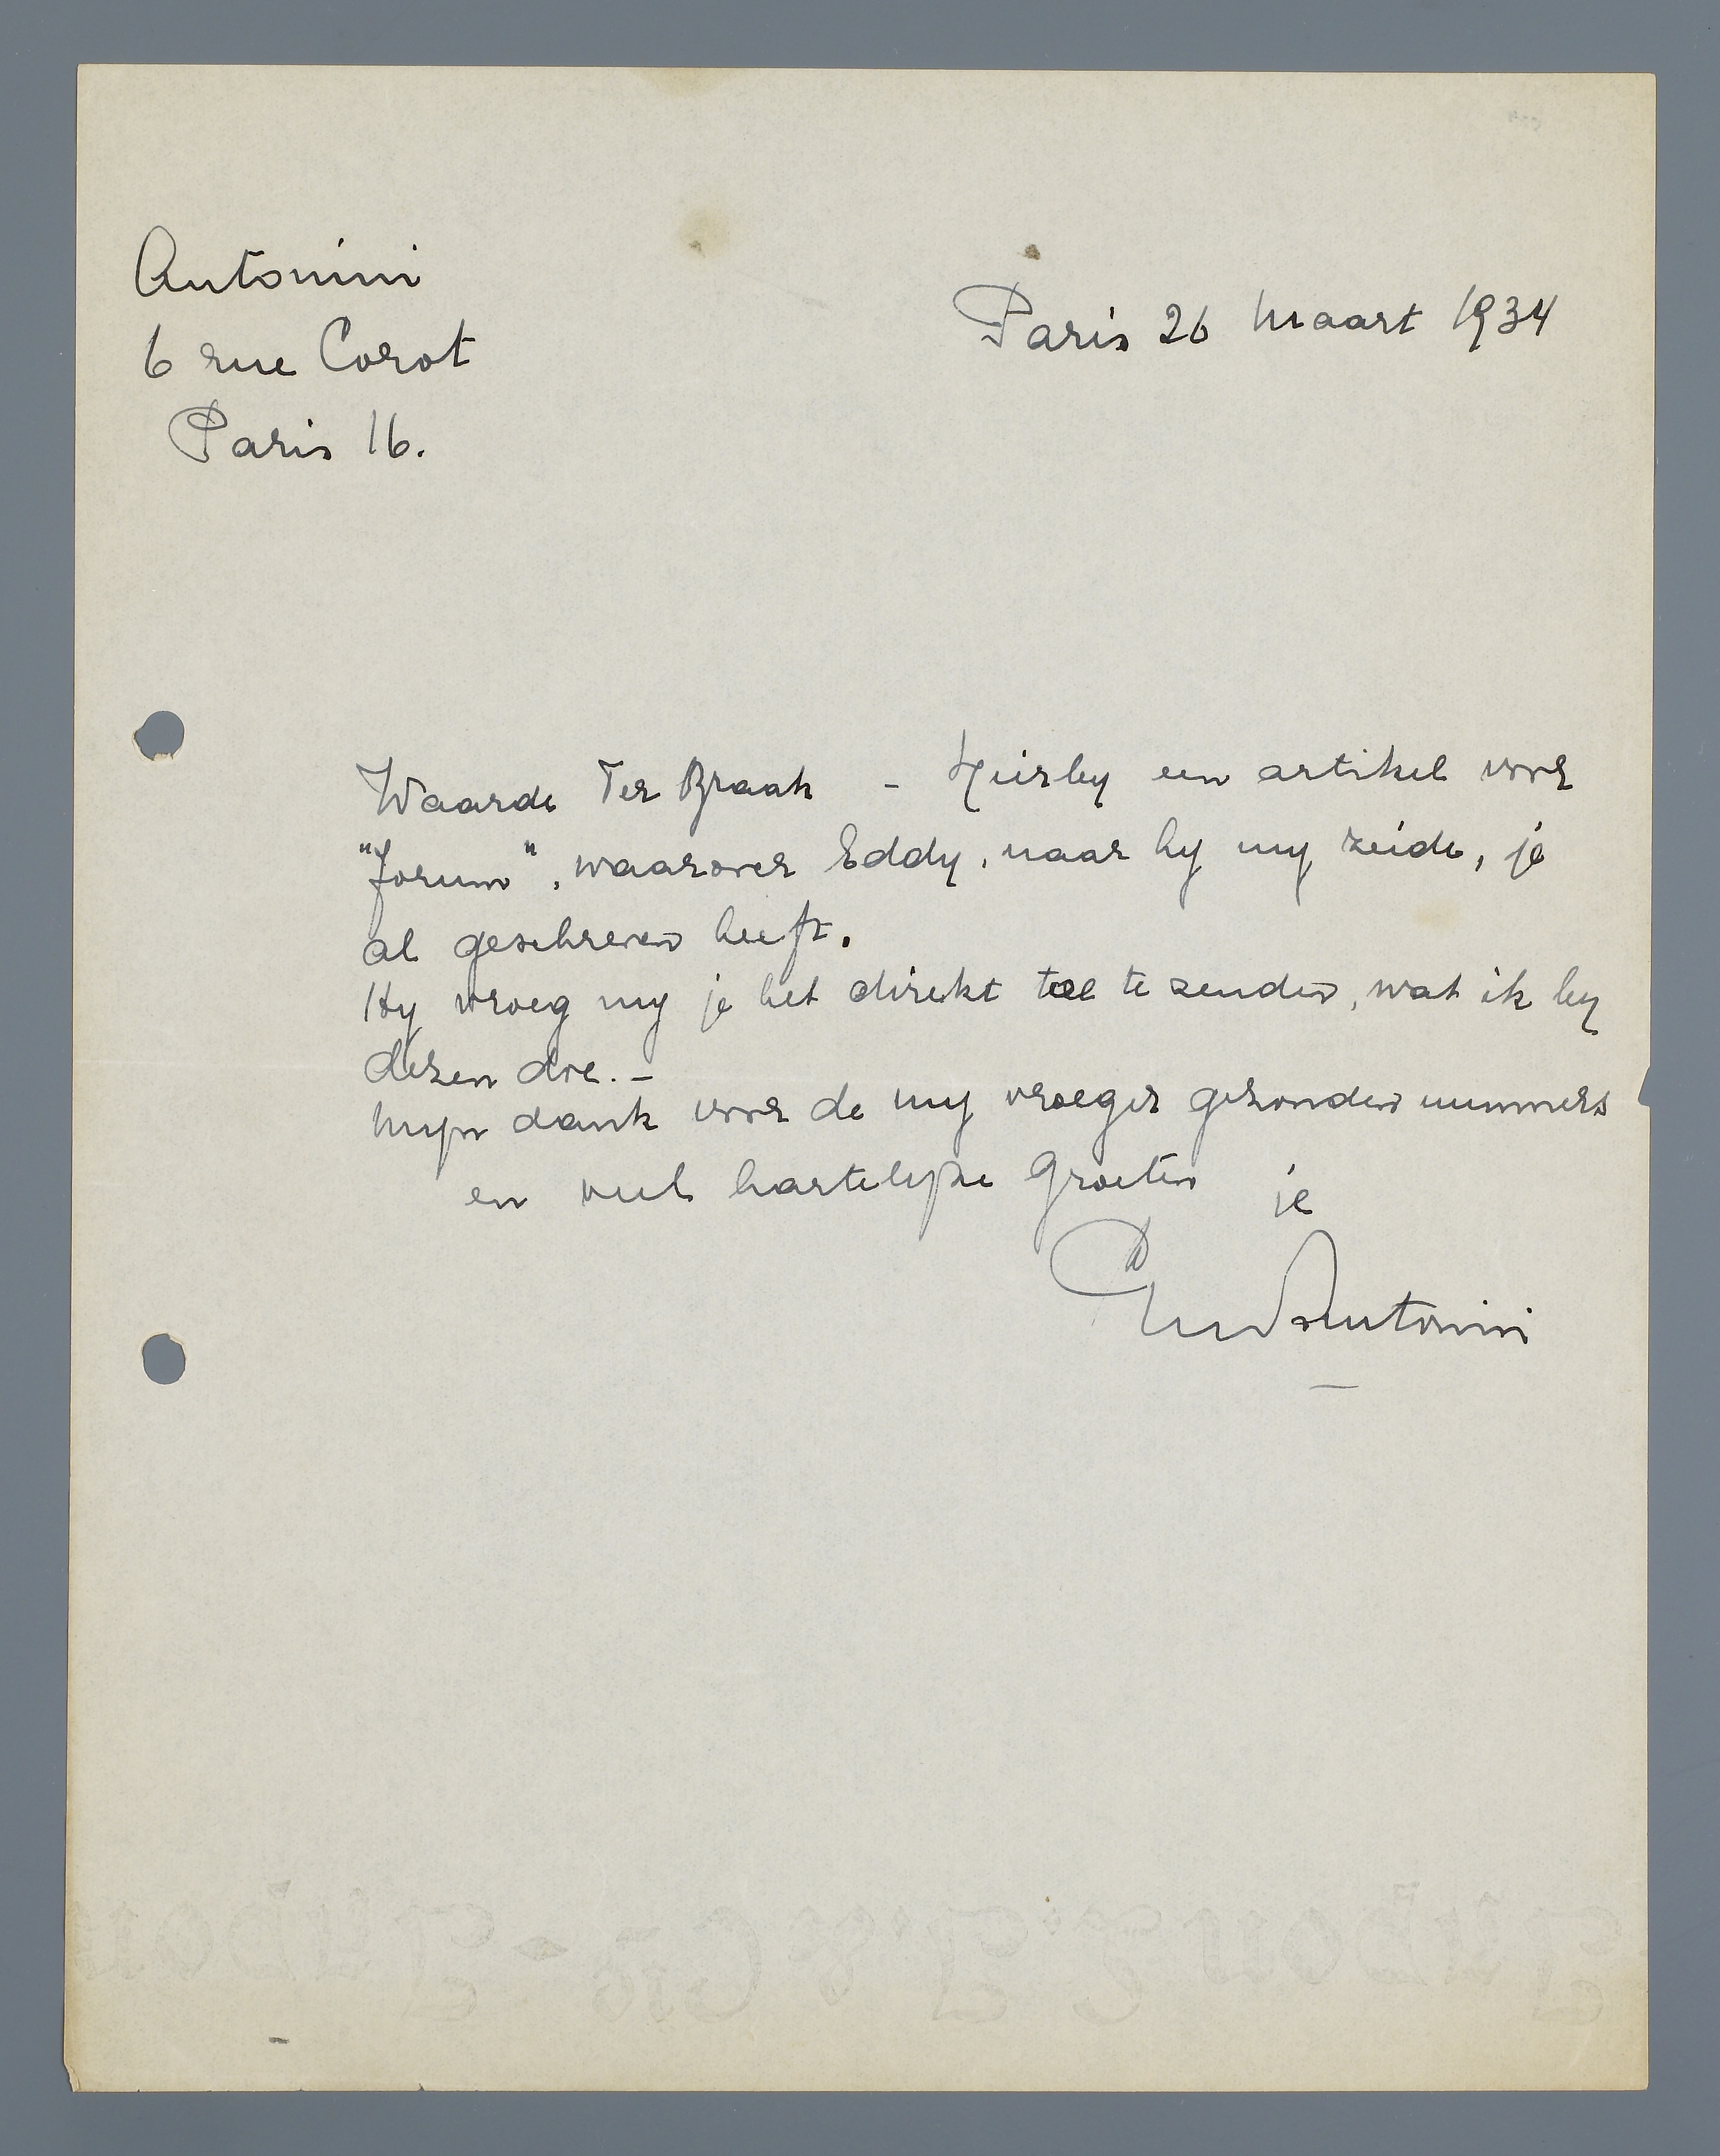 Antonini
6 rue Corot
Paris 16.
Paris 26 maart 1934
Waarde Ter Braak - Hierby een artikel voor
"Forum", waarover Eddy, naar hy my zeide, je
al geschreven heeft.
Hy vroeg my je het direkt toe te zenden, wat ik by
dezen doe. -
Mijn dank voor de my vroeger gezonden nummers
en veel hartelijke groeten je
Antonini